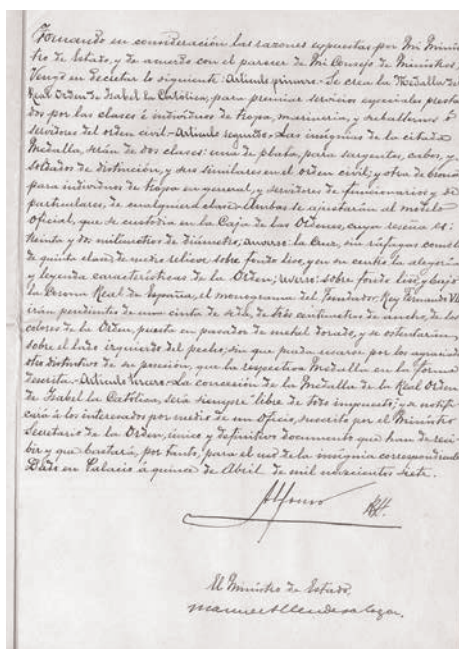 Tomando en consideración las razones expuestas por Mi Minis-
tro de Estado, y de acuerdo con el parecer de Mi Consejo de Ministros,
Vengo en decretar lo siguiente: Artículo primero.- Se crea la Medalla de
Real Orden de Isabel la Católica, para premiar servicios especiales presta-
dos por las clases é individuos de tropa, marinería, y subalternos ó
servidores del orden civil.- Artículo segundo.- Las insignias de la citada
Medalla, serán de dos clases: una de plata, para sargentos, cabos, y
soldados de distinción, y sus similares en el orden civil; y otra de bronce
para individuos de tropa en general, y servidores de funcionarios y de
particulares, de cualquiera clase. Ambas se ajustarán al modelo
oficial, que se custodia en la Caja de las Ordenes, cuya reseña es:
treinta y dos milímetros de diámetro, anverso la Cruz, sin ráfagas como la
de quinta clase, de medio relieve sobre fondo liso, y en su centro la alegoría
y leyenda características de la Orden; reverso: sobre fondo liso, y bajo
la Corona Real de España, el monograma del Fundador, Rey Fernando VII
irán pendientes de una cinta de seda, de tres centímetros de ancho, de los
colores de la Orden, puesta en pasador de metal dorado, y se ostentarán
sobre el lado izquierdo del pecho, sin que pueda usarse por los agraciados
otro distintivo de su pensión, que la respectiva Medalla en la forma
descrita.- Artículo tercero.- La concesión de la Medalla de la Real Orden
de Isabel la Católica, será siempre libre de todo impuesto; y se notifi-
cará á los interesados por medio de un Oficio, suscrito por el Ministro
Secretario de la Orden, único y definitivo documento que han de reci-
bir y que bastará, por tanto, para el uso de la insignia correspondiente
Dado en Palacio á quince de Abril de mil novecientos siete.
Alfonso
El Ministro de Estado.
Manuel Allendesalazar.